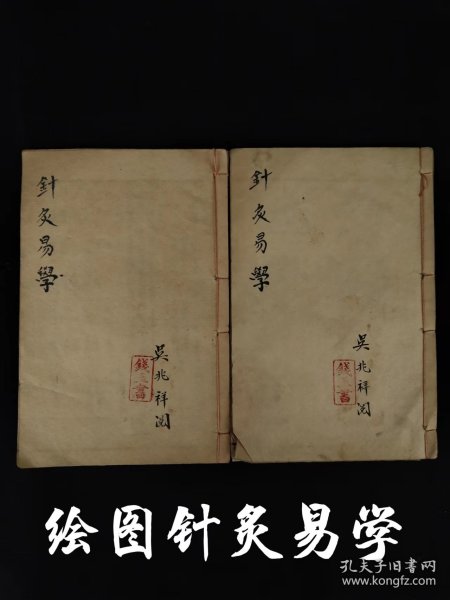 針灸易學
吳兆祥閲
針灸易學
吳兆祥閲
绘图针灸易学
孔夫子旧书网
www.kongfz.com